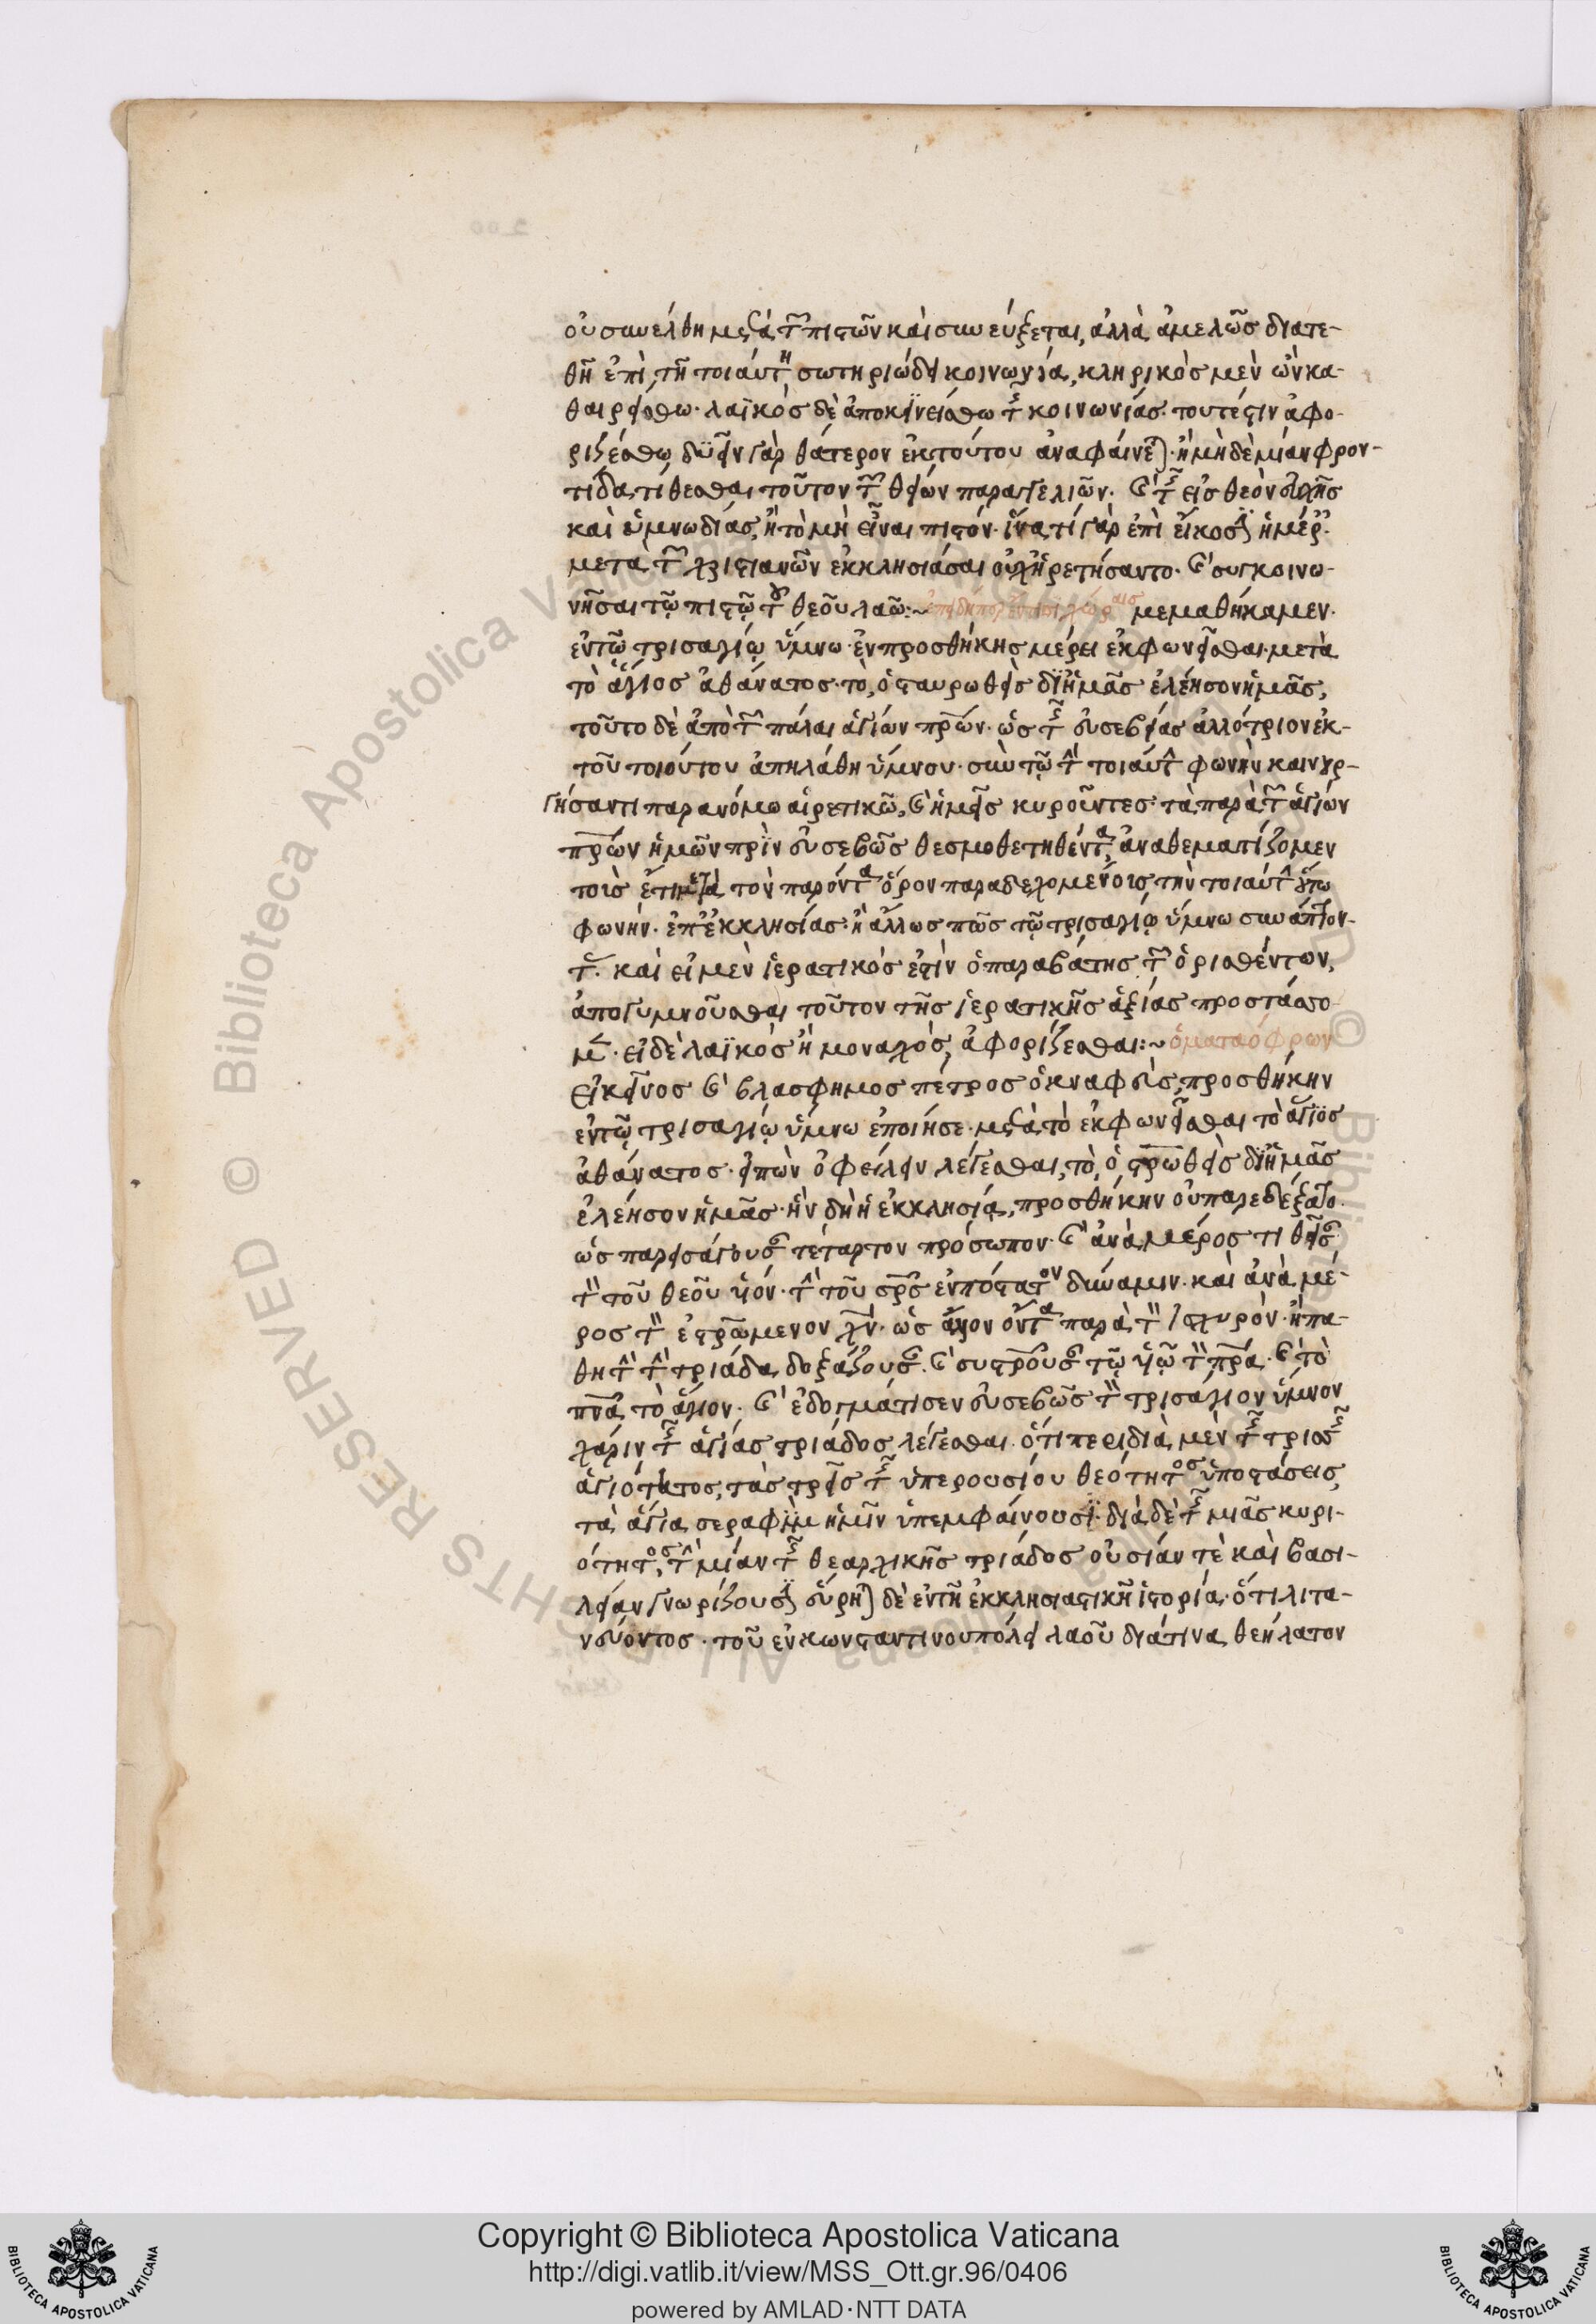 οὐ συνέλθη μετὰ τῶν πιστῶν καὶ συνεύξεται, ἀλλὰ ἀμελῶς διατε-
θῆ ἐπὶ τῆ τοιαύτη σωτηριώδει κοινωνία, κληρικὸς μὲν ὢν κα-
θαιρείσθω· λαϊκὸς δὲ ἀποκινείσθω τῆς κοινωνίας· τουτέστιν ἀφο-
ριζέσθω δυεῖν γὰρ θάτερον ἐκ τούτου ἀναφαίνεται· ἢ μὴ δὲ μίαν φρον-
τίδα τίθεσθαι τοῦτον τῶν θείων παραγγελιῶν· καὶ τῆς εἰς θεὸν εὐχῆς
καὶ ὑμνωδίας, ἢ τὸ μὴ εἶναι πιστόν· ἵνα τί γὰρ ἐπὶ εἴκοσιν ἡμέρ·
μετὰ τῶν χριστιανῶν ἐκκλησιάσαι οὐχ ἡρετήσαντο· καὶ συγκοινω-
νῆσαι τῷ πιστῷ τοῦ θεοῦ λαῶ:~ μεμαθήκαμεν·
ἐν τῶ τρισαγίῳ ὕμνω· ἐν προσθήκης μέρει ἐκφωνεῖσθαι· μετὰ
τὸ ἅγιος ἀθάνατος· τὸ, ὁ σταυρωθεὶς δι' ἡμᾶς ἐλέησον ἡμᾶς,
τοῦτο δὲ ἀπὸ τῶν πάλαι ἁγίων πρων· ὡς τῆς εὐσεβείας ἀλλότριον ἐκ-
τοῦ τοιούτου ἀπηλάθη ὕμνου· σὺν τῷ τὴν τοιαύτην φωνὴν καινουρ-
γήσαντι παρανόμω αἱρετικῶ, καὶ ἡμεῖς κυροῦντες τὰ παρὰ τῶν ἁγίων
πρων ἡμῶν πρὶν εὐσεβῶς θεσμοθετηθέντα, ἀναθεματίζομεν
τοὺς ἔτι μετὰ τὸν παρόντα ὅρον παραδεχομένοις τὴν τοιαύτην
φωνήν· ἐπ' ἐκκλησίας· ἢ ἄλλως πῶς τῷ τρισαγίῳ ὕμνω συνάπτον-
τας· καὶ εἰ μὲν ἱερατικός ἐστὶν ὁ παραβάτης τῶν ὁρισθέντων,
ἀπογυμνοῦσθαι τοῦτον τῆς ἱερατικῆς ἀξίας προστάσσο
μεν· εἰ δὲ λαϊκὸς ἢ μοναχός, ἀφορίζεσθαι:~ ὁ ματαιόφρων
ἐκεῖνος καὶ βλασφημος πέτρος ὁ κναφεὺς, προσθήκην
ἐν τῷ τρισαγίῳ ὕμνω ἐποίησε· μετὰ τὸ ἐκφωνεῖσθαι τὸ ἅγιος
ἀθάνατος· εἰπὼν ὀφείλειν λέγεσθαι, τὸ, ὁ στρωθεὶς δι' ἡμᾶς
ἐλέησον ἡμᾶς· ἣν δὴ ἡ ἐκκλησία, προσθήκην οὐ παρεδέξατο·
ὡς παρεισάγουσαν τέταρτον πρόσωπον· καὶ ἀνὰ μέρος τιθεῖσαν
τὸν τοῦ θεοῦ υἱόν· τὴν τοῦ πρς ἐνυπόστατον δύναμιν· καὶ ἀνὰ μέ-
ρος τὸν ἐστρωμενον χν· ὡς ἄλλον ὄντα παρὰ τὸν ἰσχυρόν· ἢ πα-
θητὴν τὴν τριάδα δοξάζουσαν· καὶ συστροῦσαν τῷ υἱῷ τὸν πρα· καὶ τὸ
πνα τὸ ἅγιον· καὶ ἐδογμάτισεν εὐσεβῶς τὸν τρισάγιον ὕμνον
χάριν τῆς ἁγίας τριάδος λέγεσθαι· ὅτι περ διὰ μὲν τῆς τρισσῆς
ἁγιότητος, τὰς τρεῖς τῆς ὑπερουσίου θεότητος ὑποστάσεις,
τὰ ἅγια σεραφὶμ ἡμῖν ὑπεμφαίνουσι· διὰ δὲ τῆς μιᾶς κυρι-
ότητος, τὴν μίαν τῆς θεαρχικῆς τριάδος οὐσίαν τὲ καὶ βασι-
λείαν γνωρίζουσιν εὕρηται δὲ ἐν τῆ ἐκκλησιαστικῆ ἱστορία· ὅτι λιτα-
νεύοντος· τοῦ ἐν κωνσταντινουπόλει λαοῦ διά τινα θεήλατον
Copyright © Biblioteca Apostolica Vaticana
http://digi.vatlib.it/view/MSS_Ott.gr.96/0406
powered by AMLAD·NTT DATA